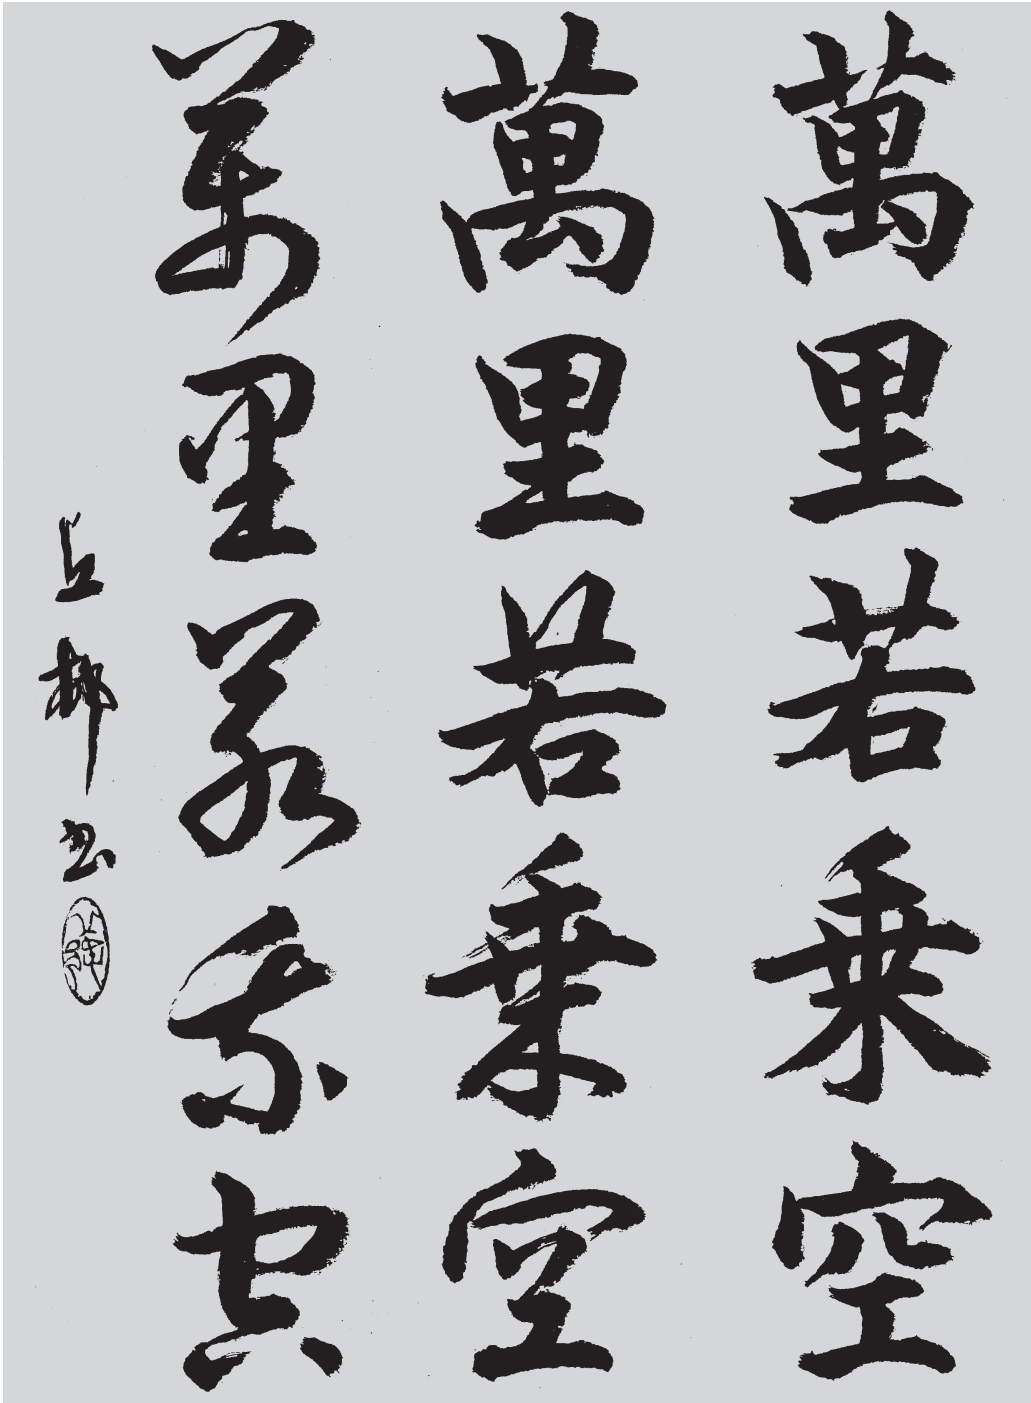 萬里若乗空
萬里若乗空
萬里若乗空